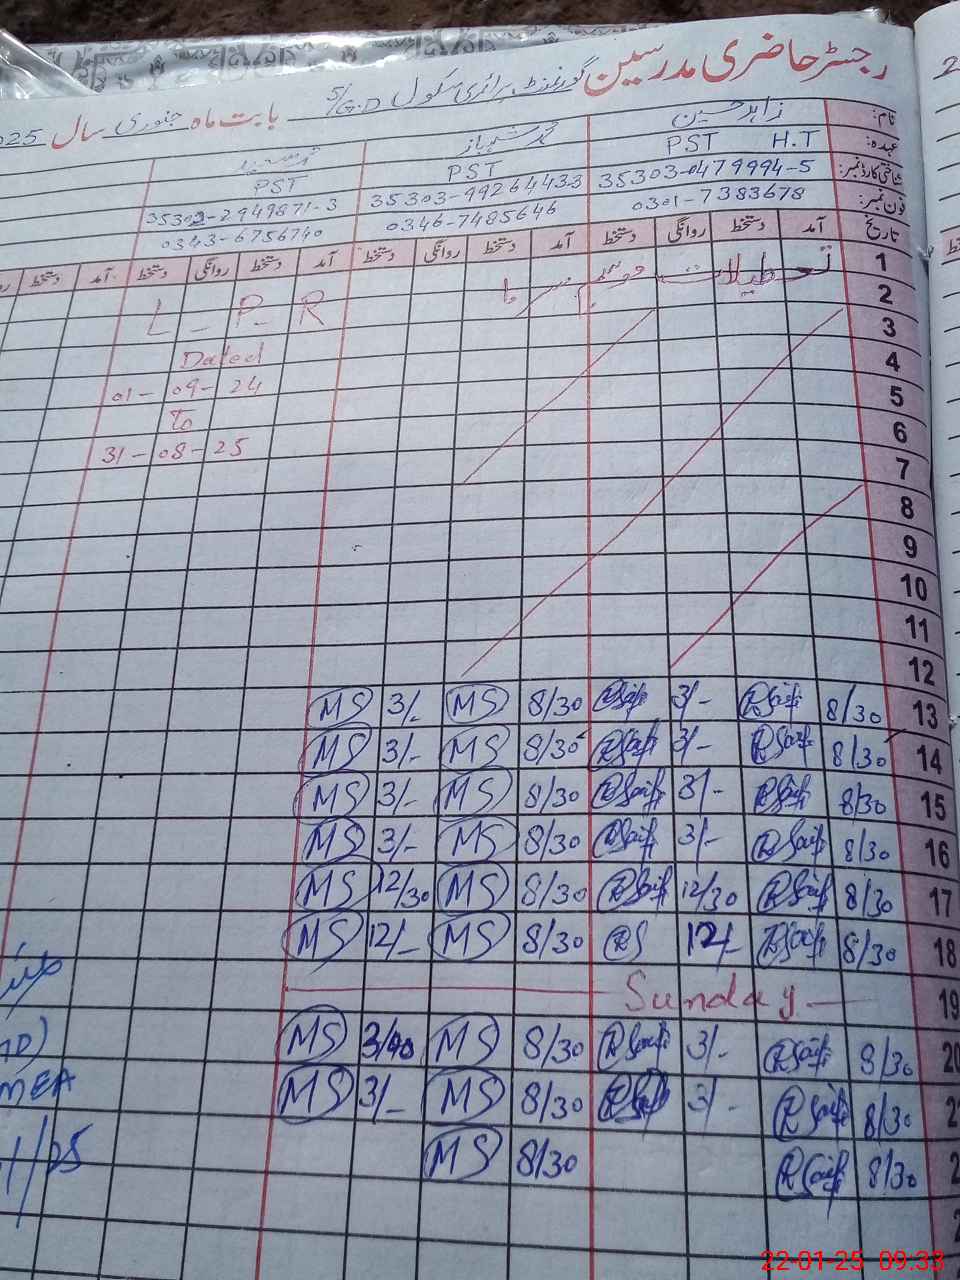 رجسٹر حاضری مدرسین گورنمنٹ پرائمری سکول 5/G.D بابت ماہ جنوری سال 025
نام: زاہد حسین محمد شہباز محمد سعید
عہدہ: PST H.T PST PST
شناختی کارڈ نمبر: 35303-0479994-5 35303-99264433 35303-2949871-3
فون نمبر: 0301-7383678 0346-7485646 0343-6756740
تاریخ آمد دستخط روانگی دستخط آمد دستخط روانگی دستخط آمد دستخط روانگی دستخط آمد دستخط
1 تعطیلات موسم سرما
2 L - P - R
3
4 Dated
5 01 - 09 - 24
6 To
7 31 - 08 - 25
8
9
10
11
12
13 8/30 RSaif 3/- RSaif 8/30 MS 3/- MS
14 8/30 RSaif 3/- RSaif 8/30 MS 3/- MS
15 8/30 RSaif 3/- RSaif 8/30 MS 3/- MS
16 8/30 RSaif 3/- RSaif 8/30 MS 3/- MS
17 8/30 RSaif 12/30 RSaif 8/30 MS 12/30 MS
18 8/30 RSaif 12/- RS 8/30 MS 12/- MS
19 Sunday
20 8/30 RSaif 3/- RSaif 8/30 MS 3/40 MS
2 8/30 RSaif 3/- 8/30 MS 3/- MS
2 8/30 RSaif 8/30 MS
2
MEA
1/25
22-01-25 09:33